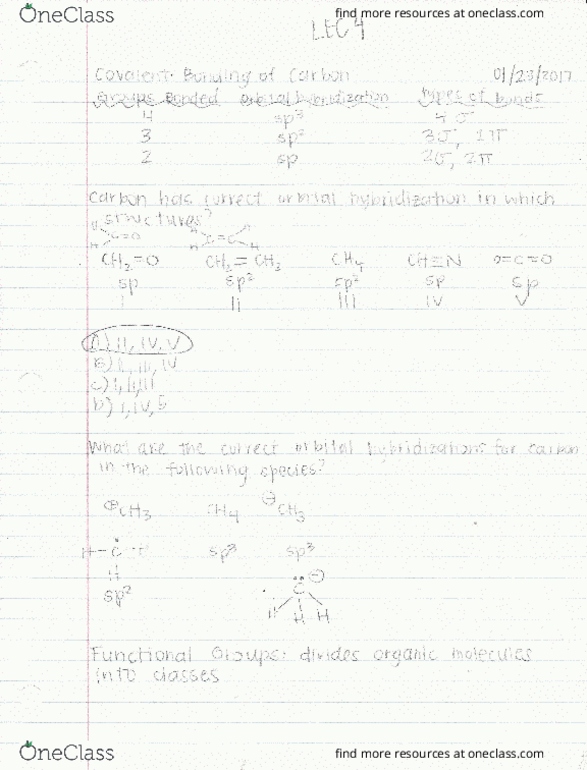 OneClass find more resources at oneclass.com
LEC 4
Covalent Bonding of Carbon 01/23/2017
Groups Bonded orbital hybridization types of bonds
4 sp³ 4σ
3 sp² 3σ, 1π
2 sp 2σ, 2π
Carbon has correct orbital hybridization in which
structures?
H C=O H C=C H
CH₂=O CH₂=CH₂ CH₄ CH≡N O=C=O
sp sp² sp² sp sp
I II III IV V
A) II, IV, V
B) II, III, IV
C) I, II, III
D) I, IV, 5
What are the correct orbital hybridizations for carbon
in the following species?
⊕CH₃ CH₄ ⊖CH₃
H-C sp³ sp³
H
sp²
C ⊖
H H H
Functional Groups: divides organic molecules
into classes
OneClass find more resources at oneclass.com